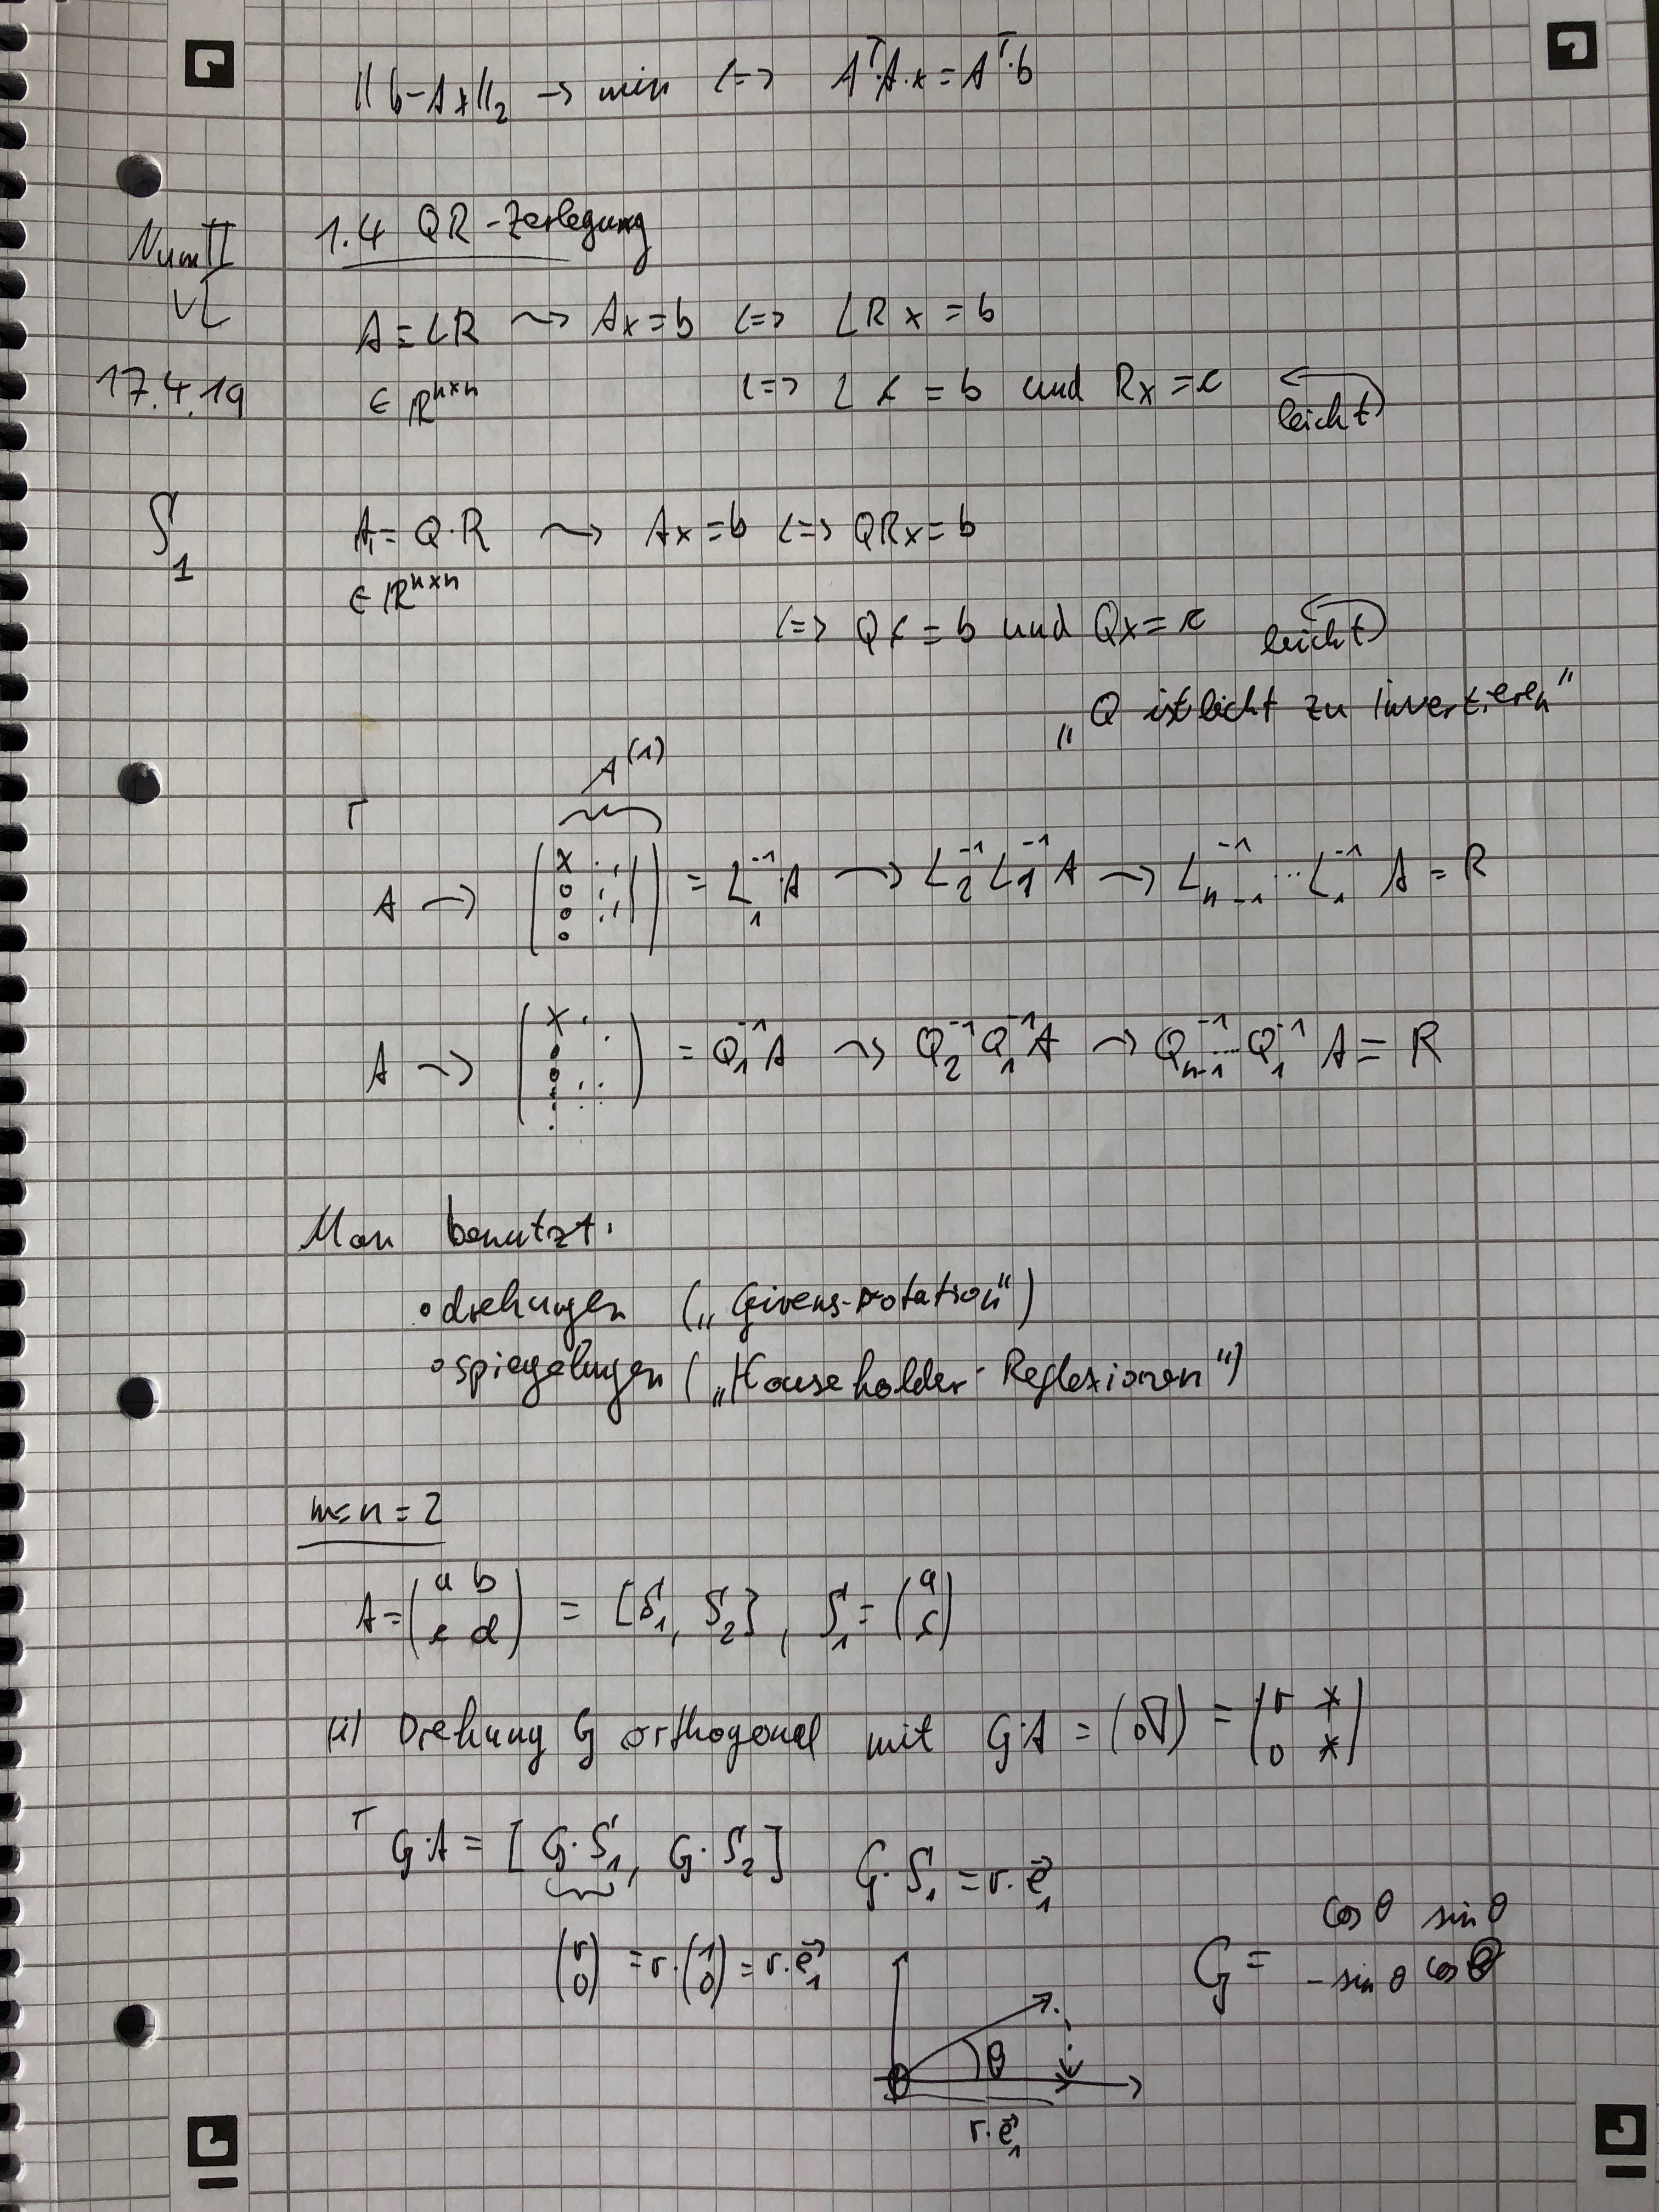 ||b-Ax||₂ → min <=> AᵀA·x = Aᵀ·b
Num II
VL
17.4.19
1.4 QR-Zerlegung
A = LR ⇝ Ax = b <=> LRx = b
∈ ℝⁿˣⁿ <=> Lc = b und Rx = c leicht
S₁
A = Q·R ⇝ Ax = b <=> QRx = b
∈ ℝⁿˣⁿ
<=> Qc = b und Qx = c leicht
„Q ist leicht zu invertieren"
A⁽¹⁾
A → (x 0 0 0) = L₁⁻¹·A → L₂⁻¹L₁⁻¹A → Lₙ₋₁⁻¹...L₁⁻¹ A = R
A → (x 0 0 ⋮) = Q₁⁻¹A ⇝ Q₂⁻¹Q₁⁻¹A → Qₙ₋₁⁻¹...Q₁⁻¹ A = R
Man benutzt:
• drehungen („Givens-Rotation")
• spiegelungen („Householder-Reflexionen")
m=n=2
A = (a b; c d) = [S₁, S₂], S₁ = (a; c)
(i) Drehung G orthogonal mit G·A = (0∇) = (r *; 0 *)
G·A = [G·S₁, G·S₂] G·S₁ = r·e⃗₁
(r; 0) = r·(1; 0) = r·e⃗₁
G = cos θ sin θ
-sin θ cos θ
θ
r·e⃗₁